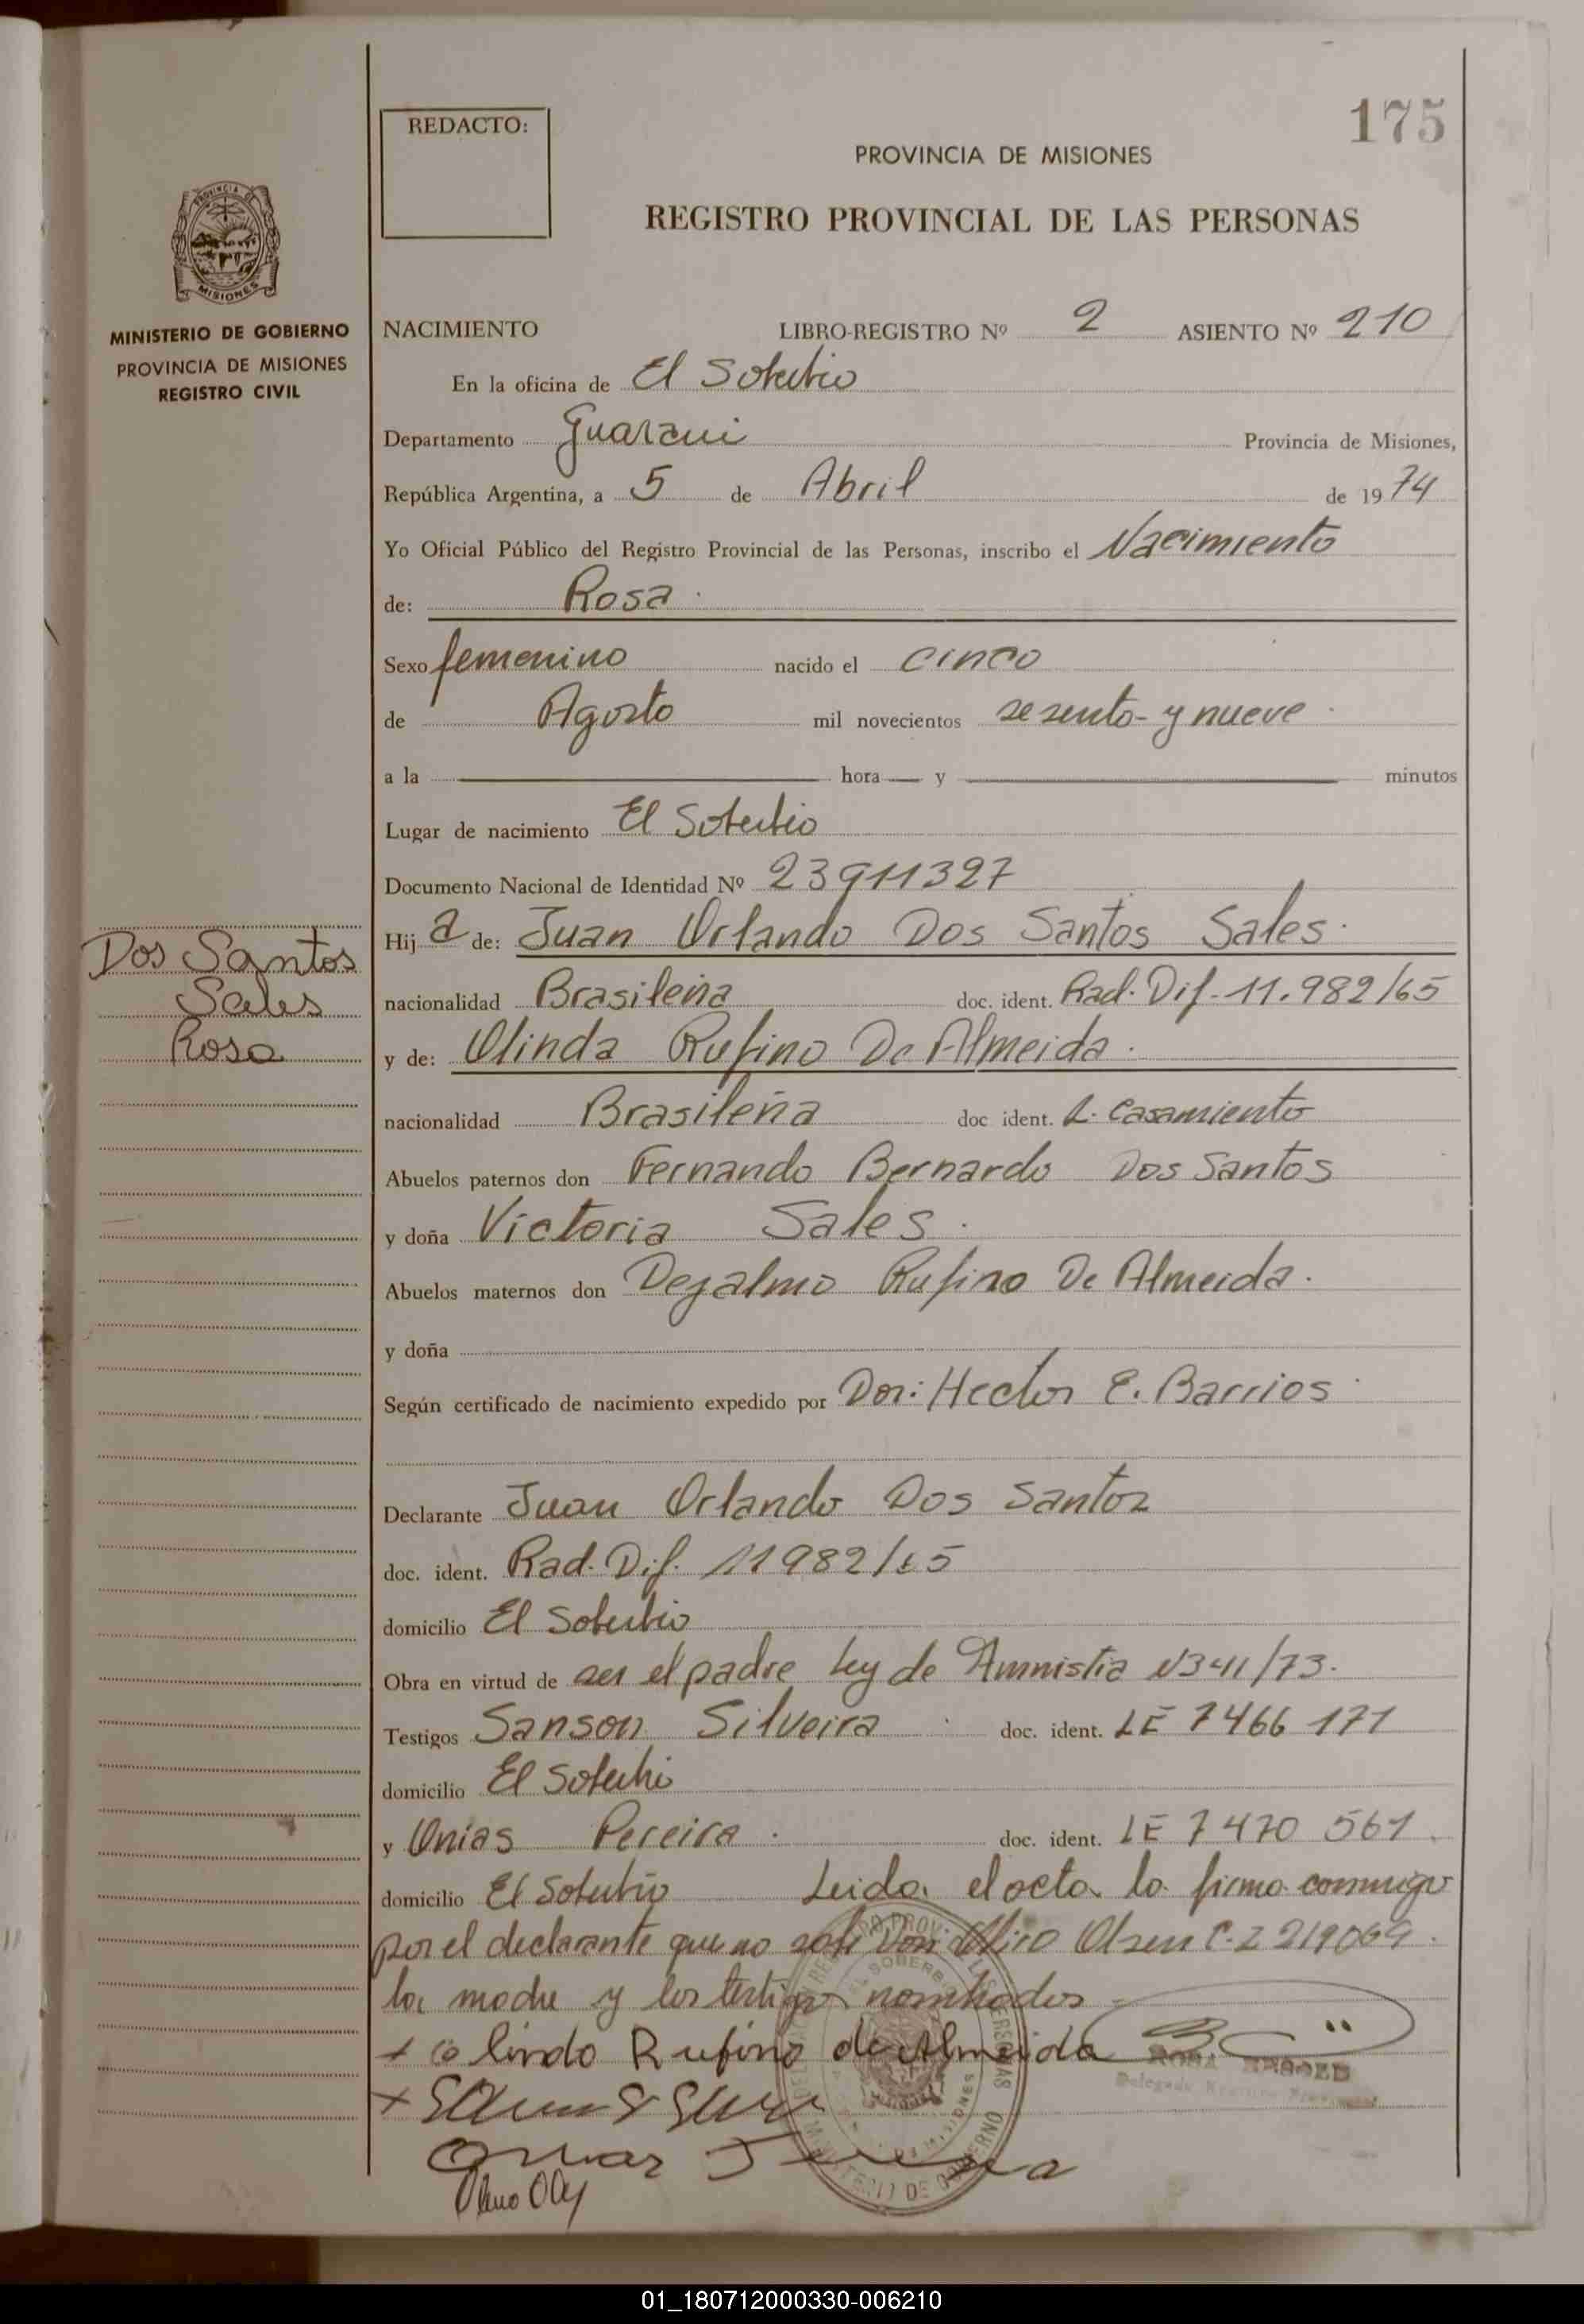 175
REDACTO:
PROVINCIA DE MISIONES
REGISTRO PROVINCIAL DE LAS PERSONAS
PROVINCIA DE
MISIONES
MINISTERIO DE GOBIERNO
PROVINCIA DE MISIONES
REGISTRO CIVIL
NACIMIENTO LIBRO-REGISTRO Nº 2 ASIENTO Nº 210
En la oficina de El Soberbio
Departamento Guarani Provincia de Misiones,
República Argentina, a 5 de Abril de 1974
Yo Oficial Público del Registro Provincial de las Personas, inscribo el Nacimiento
de: Rosa.
Sexo femenino nacido el cinco
de Agosto mil novecientos sesenta y nueve
a la hora y minutos
Lugar de nacimiento El Soberbio
Documento Nacional de Identidad Nº 23911327
Hija de: Juan Orlando Dos Santos Sales.
Dos Santos
Sales
Rosa
nacionalidad Brasileña doc. ident. Rad. Dif. 11.982/65
y de: Olinda Rufino De Almeida.
nacionalidad Brasileña doc ident. L. Casamiento
Abuelos paternos don Fernando Bernardo Dos Santos
y doña Victoria Sales.
Abuelos maternos don Dejalmo Rufino De Almeida.
y doña
Según certificado de nacimiento expedido por Dor: Hector E. Barrios
Declarante Juan Orlando Dos Santos
doc. ident. Rad. Dif. 11982/65
domicilio El Soberbio
Obra en virtud de ser el padre Ley de Amnistia N341/73.
Testigos Sanson Silveira doc. ident. LE 7466 171
domicilio El Soberbio
y Onias Pereira. doc. ident. LE 7470 561.
domicilio El Soberbio Leida el acta la firma conmigo
por el declarante que no sabe Don Olsen C.I 219069.
la madre y los testigos nombrados
+ Olindo Rufino de Almeida
ROSA
Delegada Registro Provincial
+
01_180712000330-006210